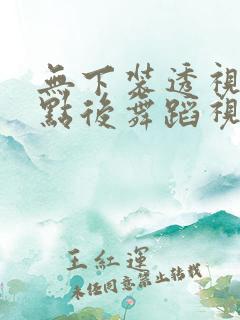 無下裝透視
點後舞蹈視
王紅運
未任同意禁止转载